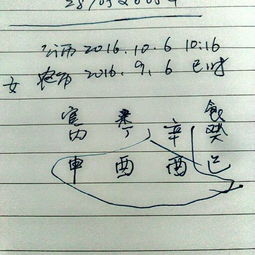 公历 2016.10.6 10:16
女 农历 2016.9.6 巳时
官 杀 食
丙 丁 辛 癸
申 酉 酉 巳